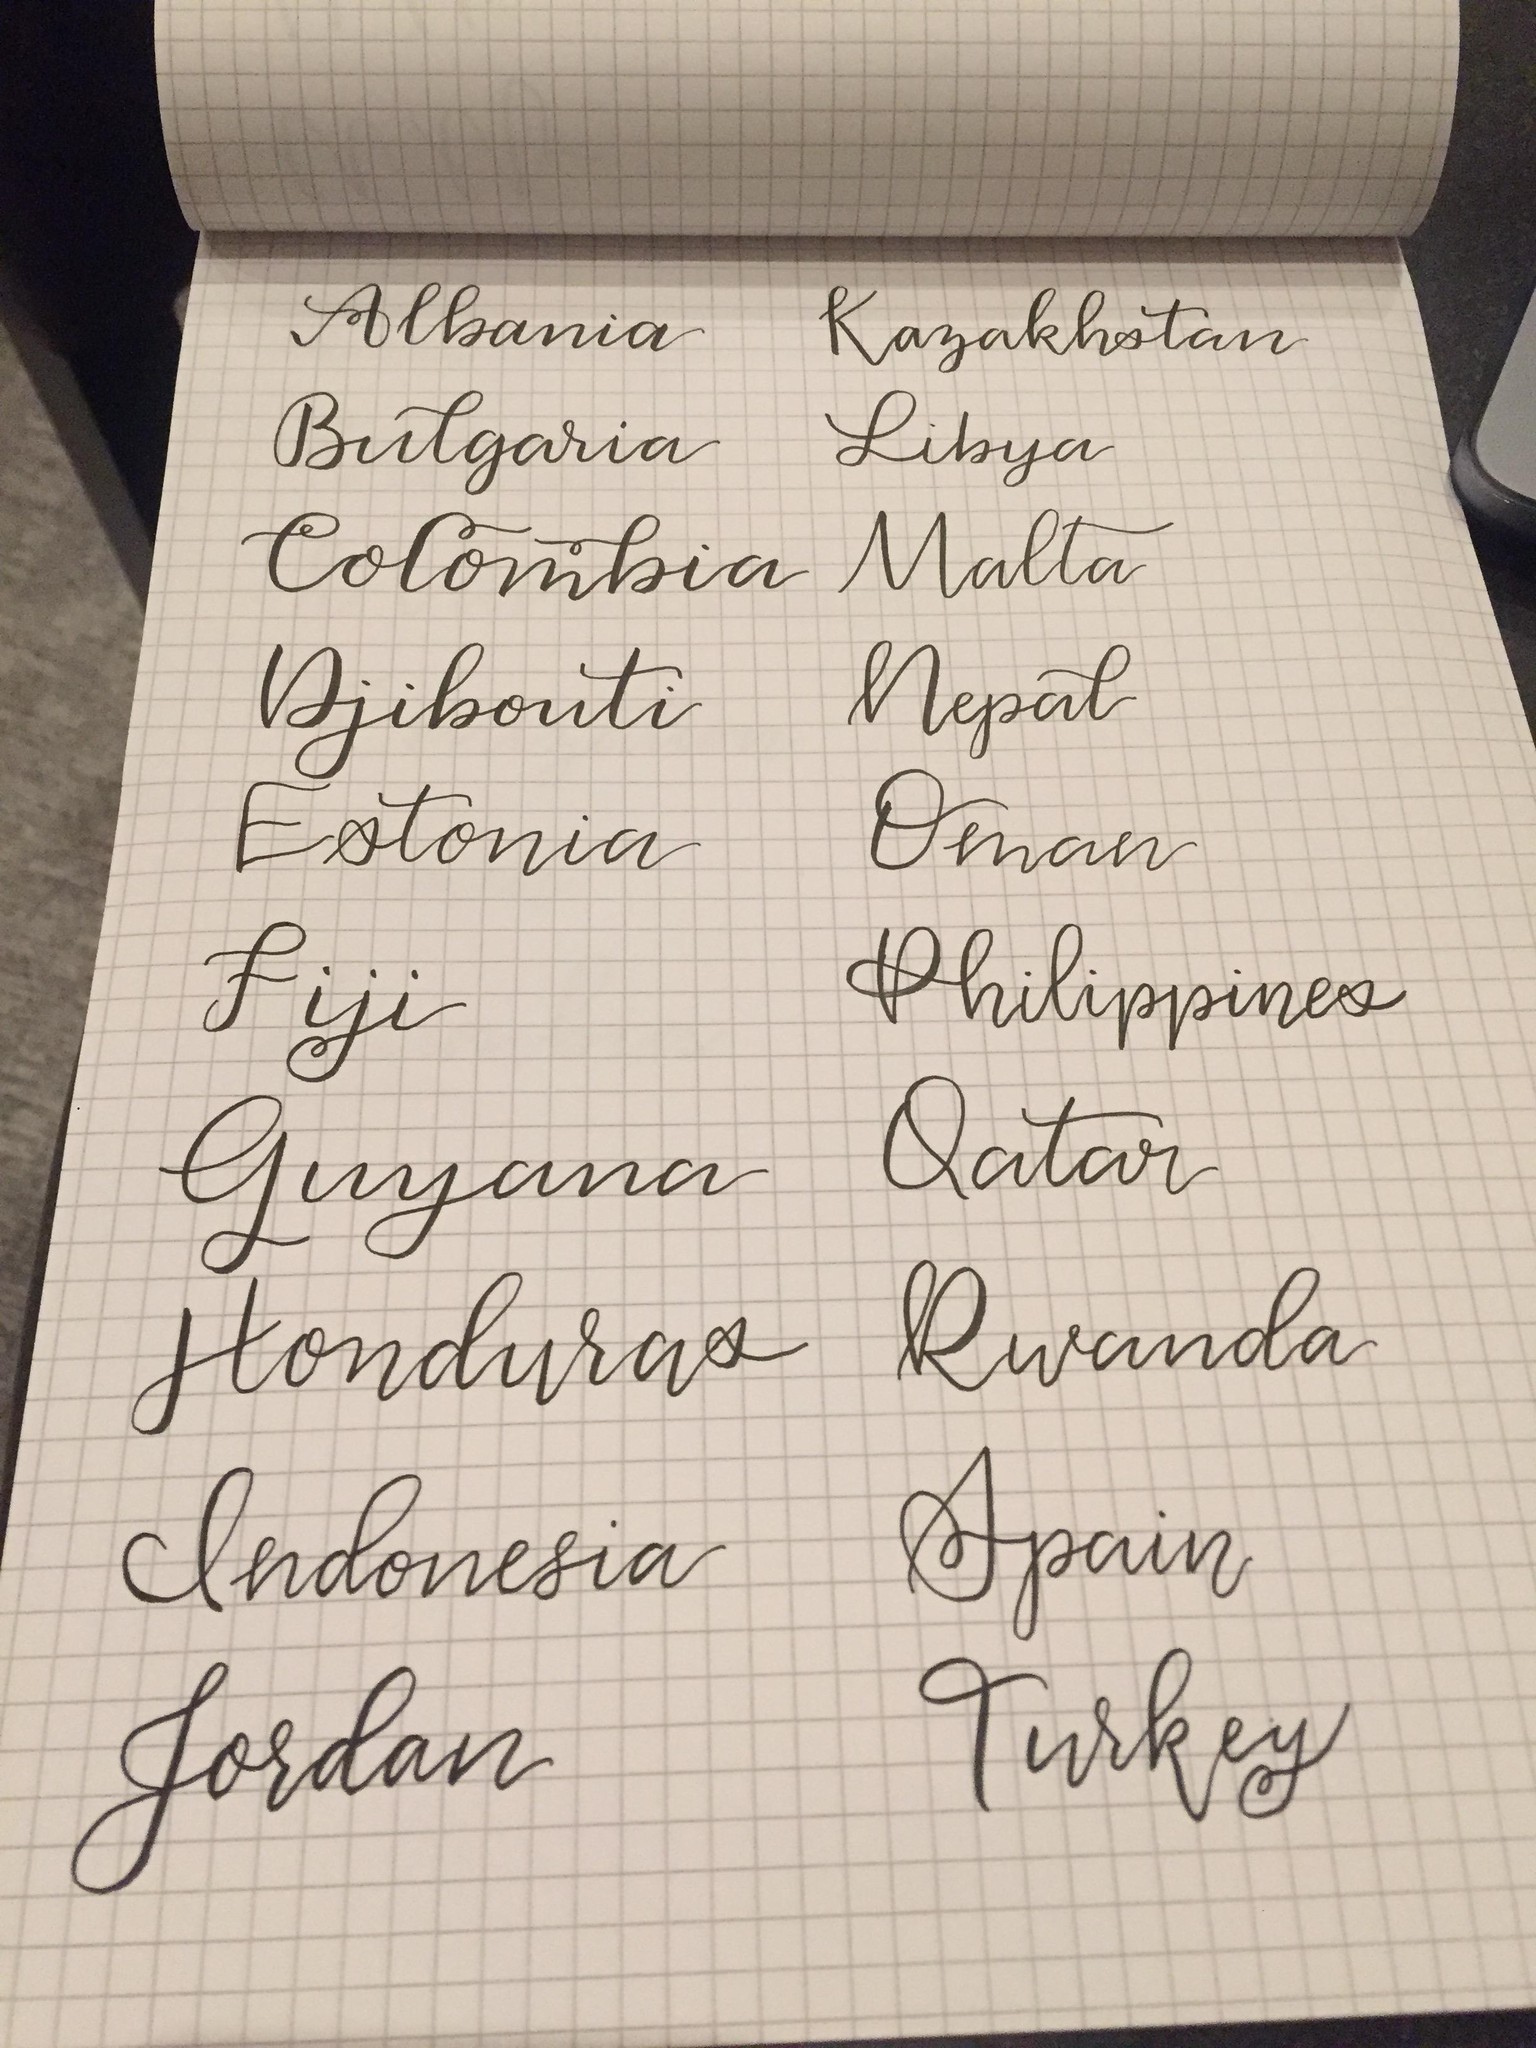 Albania
Bulgaria
Colombia
Djibouti
Estonia
Fiji
Guyana
Honduras
Indonesia
Jordan
Kazakhstan
Libya
Malta
Nepal
Oman
Philippines
Qatar
Rwanda
Spain
Turkey